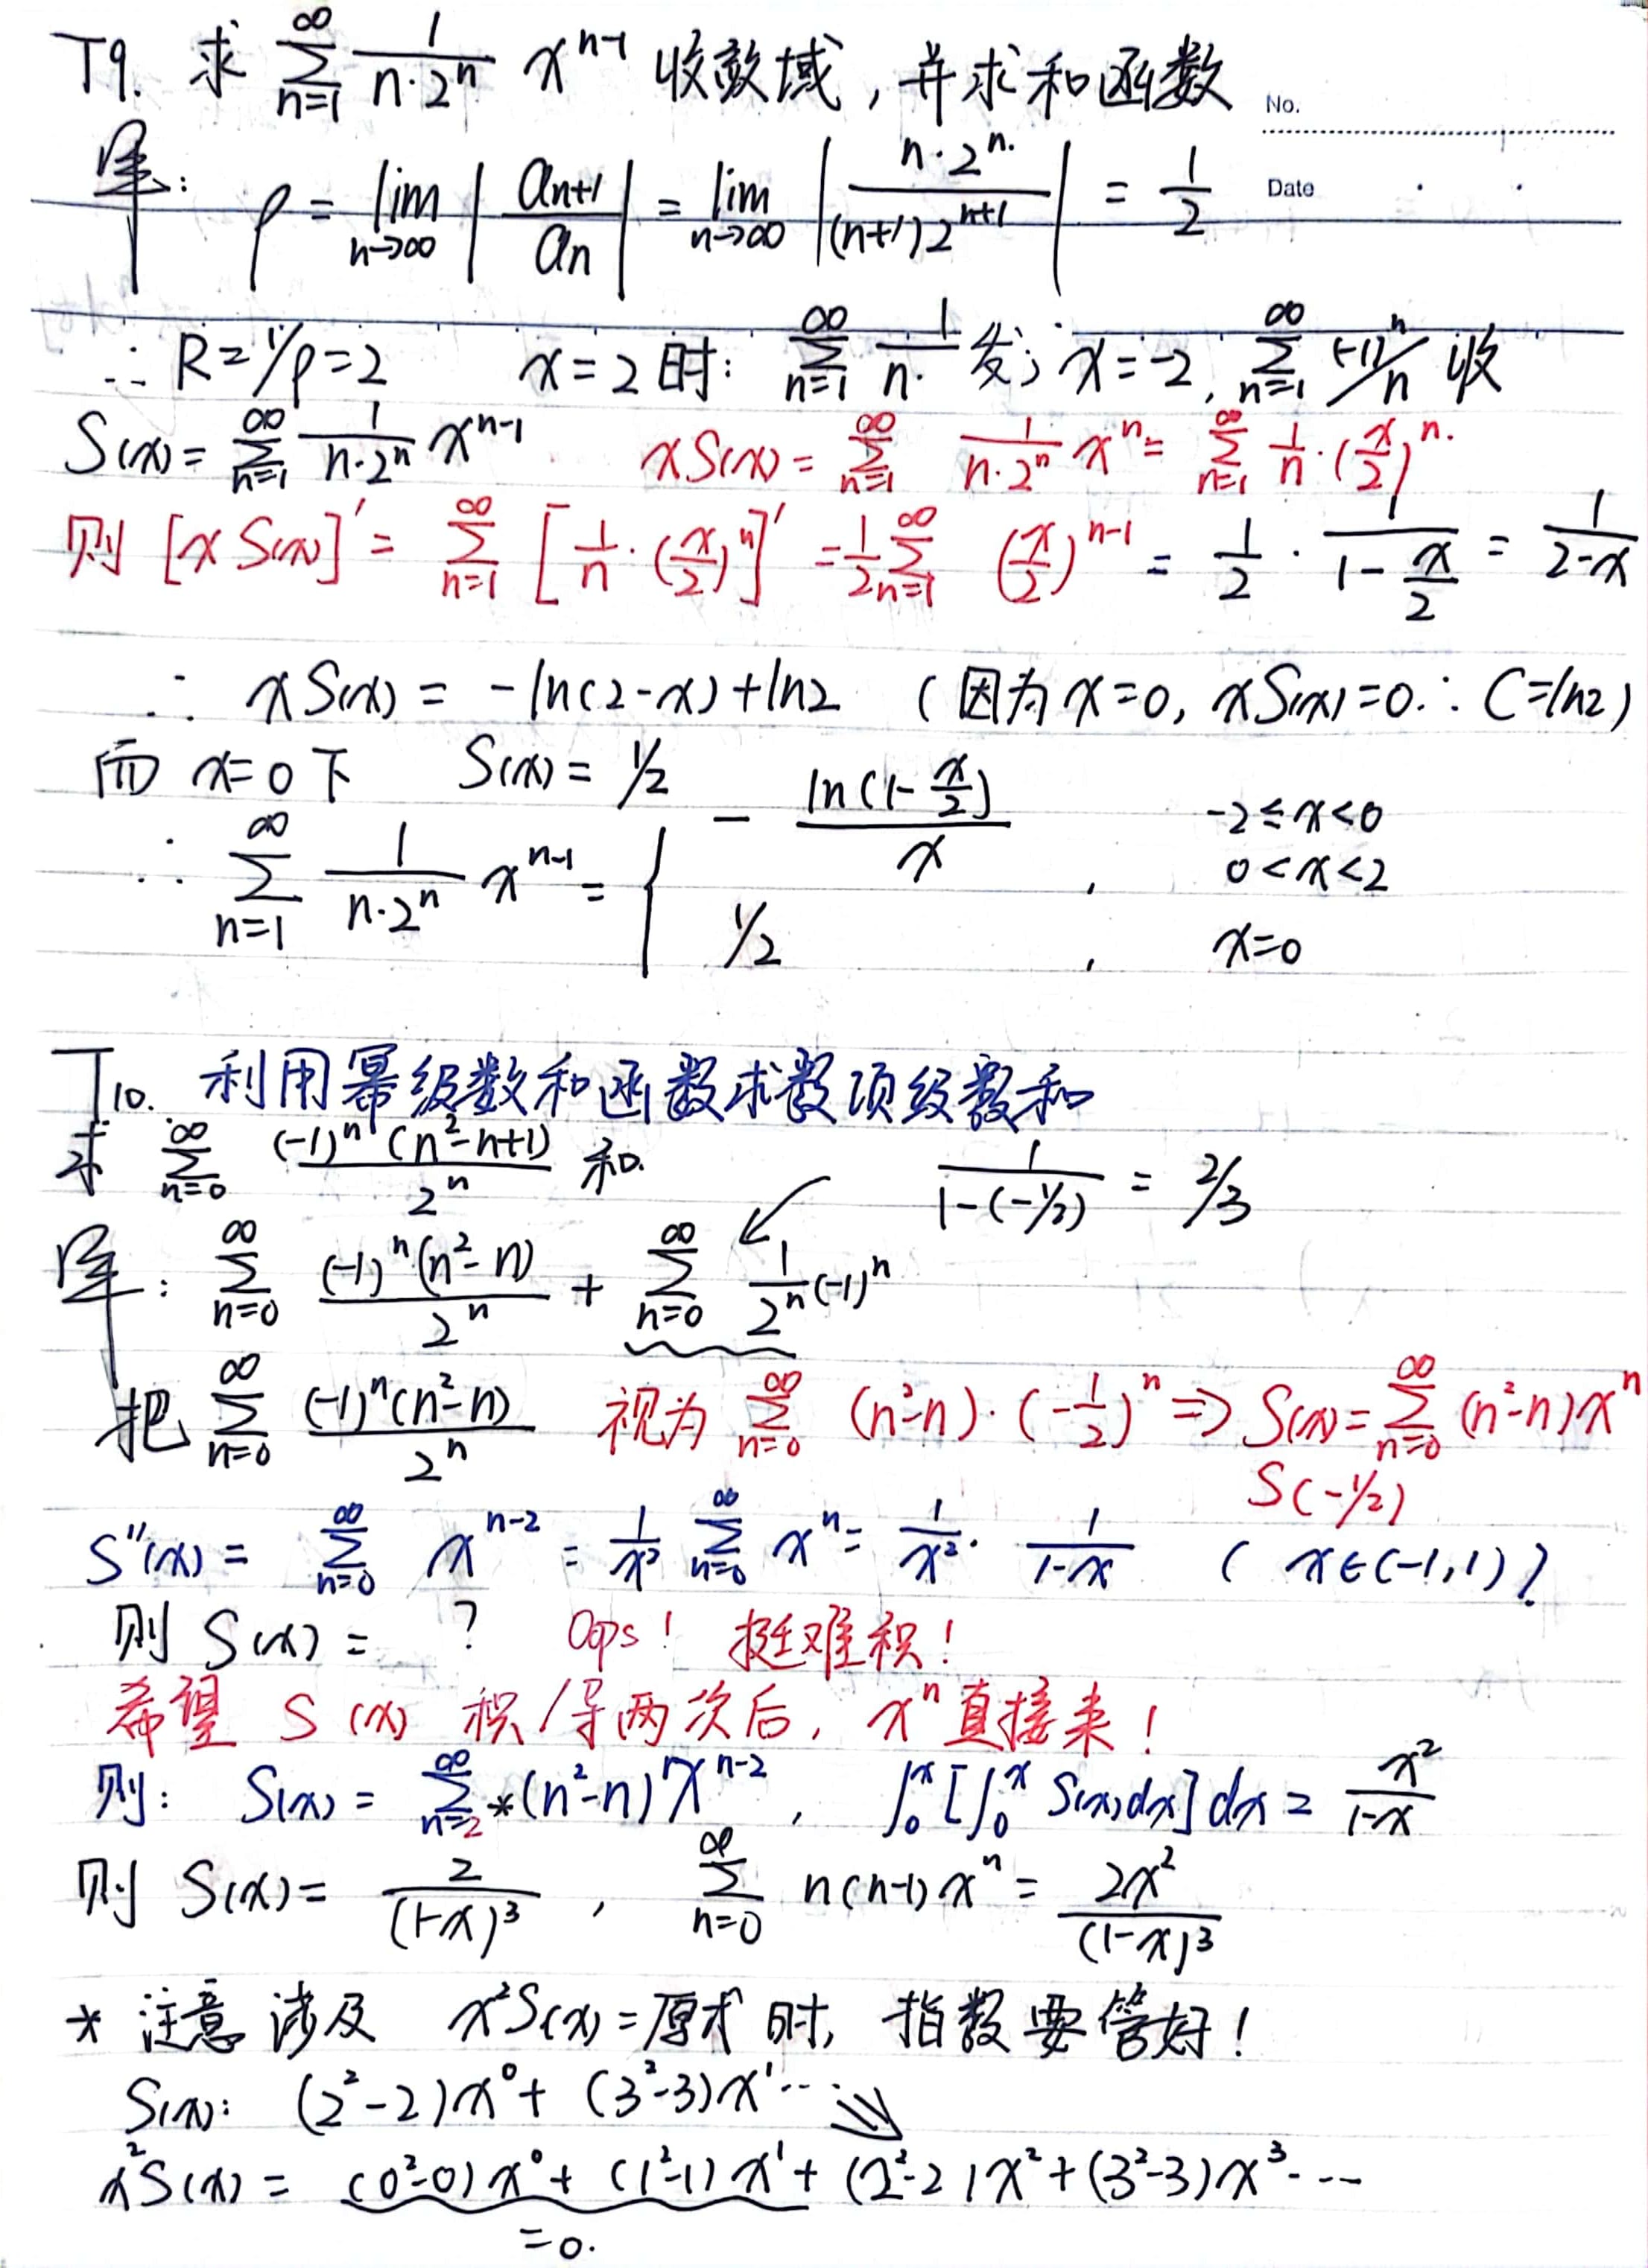 T9. 求 ∑_{n=1}^{∞} 1/(n·2^n) x^{n-1} 收敛域，并求和函数
No.
Date
解: ρ = lim_{n→∞} |a_{n+1}/a_n| = lim_{n→∞} |n·2^n/((n+1)2^{n+1})| = 1/2
∴ R=1/ρ=2 x=2时: ∑_{n=1}^{∞} 1/n 发; x=-2, ∑_{n=1}^{∞} (-1)^n/n 收
S(x)= ∑_{n=1}^{∞} 1/(n·2^n) x^{n-1} xS(x)= ∑_{n=1}^{∞} 1/(n·2^n) x^n = ∑_{n=1}^{∞} 1/n·(x/2)^n.
则 [xS(x)]' = ∑_{n=1}^{∞} [1/n·(x/2)^n]' = 1/2 ∑_{n=1}^{∞} (x/2)^{n-1} = 1/2 · 1/(1-x/2) = 1/(2-x)
∴ xS(x) = -ln(2-x)+ln2 (因为x=0, xS(x)=0 ∴ C=ln2)
而 x=0下 S(x)= 1/2
∴ ∑_{n=1}^{∞} 1/(n·2^n) x^{n-1} = { - ln(1-x/2)/x , -2≤x<0
0<x<2
1/2 , x=0
T10. 利用幂级数和函数求数项级数和
求 ∑_{n=0}^{∞} (-1)^n(n²-n+1)/2^n 和. 1/(1-(-1/2)) = 2/3
解: ∑_{n=0}^{∞} (-1)^n(n²-n)/2^n + ∑_{n=0}^{∞} 1/2^n (-1)^n
把 ∑_{n=0}^{∞} (-1)^n(n²-n)/2^n 视为 ∑_{n=0}^{∞} (n²-n)·(-1/2)^n ⇒ S(x)=∑_{n=0}^{∞} (n²-n)x^n
S(-1/2)
S''(x) = ∑_{n=0}^{∞} x^{n-2} = 1/x² ∑_{n=0}^{∞} x^n = 1/x² · 1/(1-x) (x∈(-1,1))
则 S(x) = ? Oops! 挺难积!
希望 S(x) 积/导两次后, x^n 直接来!
则: S(x) = ∑_{n=2}^{∞} *(n²-n) x^{n-2}, ∫_0^x[∫_0^x S(x)dx]dx = x²/(1-x)
则 S(x)= 2/(1-x)³ , ∑_{n=0}^{∞} n(n-1)x^n = 2x²/(1-x)³
* 注意 涉及 x²S(x)=原式 时, 指数要管好!
S(x): (2²-2)x⁰+ (3²-3)x¹ ⋯
x²S(x) = (0²-0)x⁰+ (1²-1)x¹+ (2²-2)x²+(3²-3)x³⋯
=0.